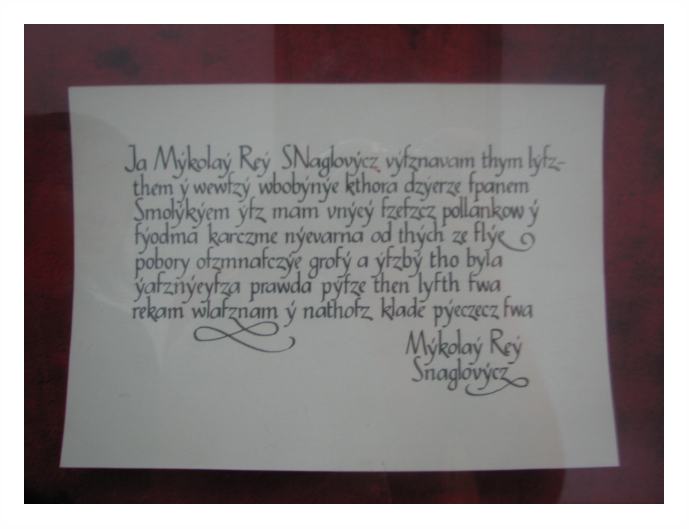 Ja Mýkolaý Reý SNaglovýcz výſznavam thym lýſz-
them ý wewſzý wbobýnýe kthora dzýerze ſpanem
Smolýkýem ýſz mam vnýcý ſzeſzcz pollankow ý
ſýodma karczme nýevarna od thých ze ſlýe
pobory oſzmnaſczýe groſý a ýſzbý tho była
ýaſznýeyſza prawda pýſze then lyſth ſwa
rekam wlaſznam ý nathoſz klade pýeczecz ſwa
Mýkolaý Reý
Snaglovýcz